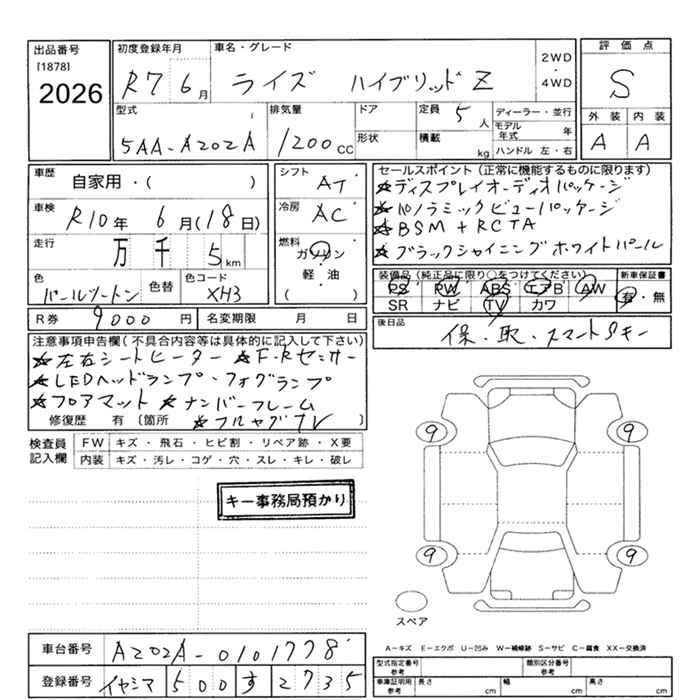 出品番号
[1878]
2026
初度登録年月
R7 6月
車名・グレード
ライズ ハイブリッド Z
2WD
・
4WD
評価点
S
外装 内装
A A
型式
5AA-A202A
排気量
1200 CC
ドア
形状
定員
5人
積載
kg
ディーラー・並行
モデル年式 年
ハンドル 左・右
車歴
自家用・( )
車検
R10年 6月(18日)
走行
万 千 5 km
色
パールツートン
色替
色コード
XH3
シフト
AT
冷房
AC
燃料
ガソリン
軽・油
( )
セールスポイント(正常に機能するものに限ります)
★ディスプレイオーディオパッケージ
★パノラミックビューパッケージ
★BSM+RCTA
★ブラックシャイニングホワイトパール
装備品(純正品に限り○をつけてください)
PS PW ABS エアB AW
SR ナビ TV カワ
新車保証書
有・無
R券 9000円
名変期限 月 日
後日品
保・取・スマートキー
注意事項申告欄(不具合内容等は具体的に記入して下さい)
★左右シートヒーター ★F・Rセンサー
★LEDヘッドランプ・フォグランプ
★フロアマット ★ナンバーフレーム
修復歴 有 〔箇所 〕
★フルセグTV
検査員記入欄
FW キズ・飛石・ヒビ割・リペア跡・X要
内装 キズ・汚レ・コゲ・穴・スレ・キレ・破レ
キー事務局預かり
9 9
9 9
スペア
A－キズ E－エクボ U－凹み W－補修跡 S－サビ C－腐食 XX－交換済
車台番号 A202A-0101778
登録番号 500 す 2735
型式指定番号 参考
類別区分番号 参考
車庫証明用 参考
長さ cm 幅 cm 高さ cm